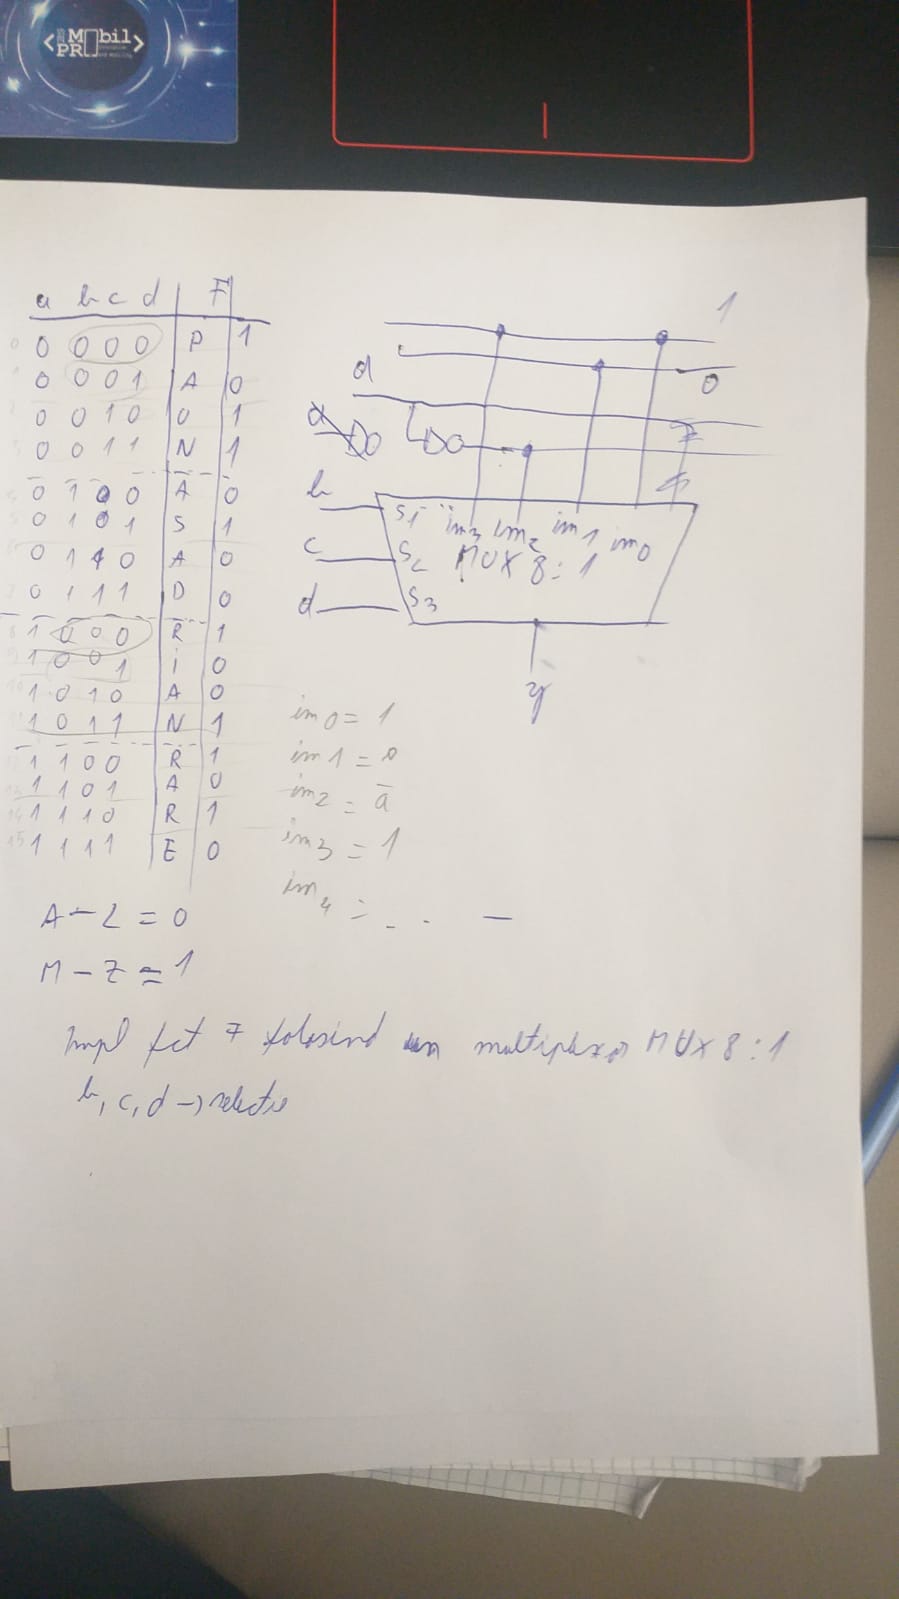 <M bil>
PR
a b c d F
0 0 0 0 P 1
0 0 0 1 A 0
0 0 1 0 U 1
0 0 1 1 N 1
0 1 0 0 A 0
0 1 0 1 S 1
0 1 1 0 A 0
0 1 1 1 D 0
1 0 0 0 R 1
1 0 0 1 i 0
1 0 1 0 A 0
1 0 1 1 N 1
1 1 0 0 R 1
1 1 0 1 A 0
1 1 1 0 R 1
1 1 1 1 E 0
A - L = 0
M - Z = 1
1
0
d
b S1 in3 in2 in1 in0
c S2 MUX 8:1
d S3
y
in0 = 1
in1 = 0
in2 = ā
in3 = 1
in4 = - - -
Impl fct F folosind un multiplexor MUX 8:1
b, c, d → selectie